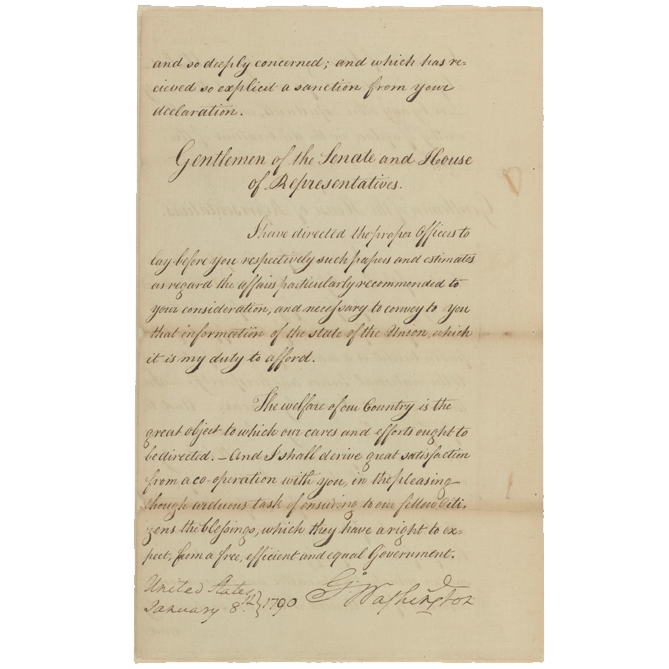 and so deeply concerned; and which has re-
ceived so explicit a sanction from your
declaration.
Gentlemen of the Senate and House
of Representatives.
I have directed the proper Officers to
lay before you respectively such papers and estimates
as regard the affairs particularly recommended to
your consideration, and necessary to convey to you
that information of the state of the Union, which
it is my duty to afford.
The welfare of our Country is the
great object to which our cares and efforts ought to
be directed. – And I shall derive great satisfaction
from a co-operation with you, in the pleasing
though arduous task of ensuring to our fellow Citi-
zens the blessings, which they have a right to ex-
pect, from a free, efficient and equal Government.
United States
January 8th 1790
Go Washington